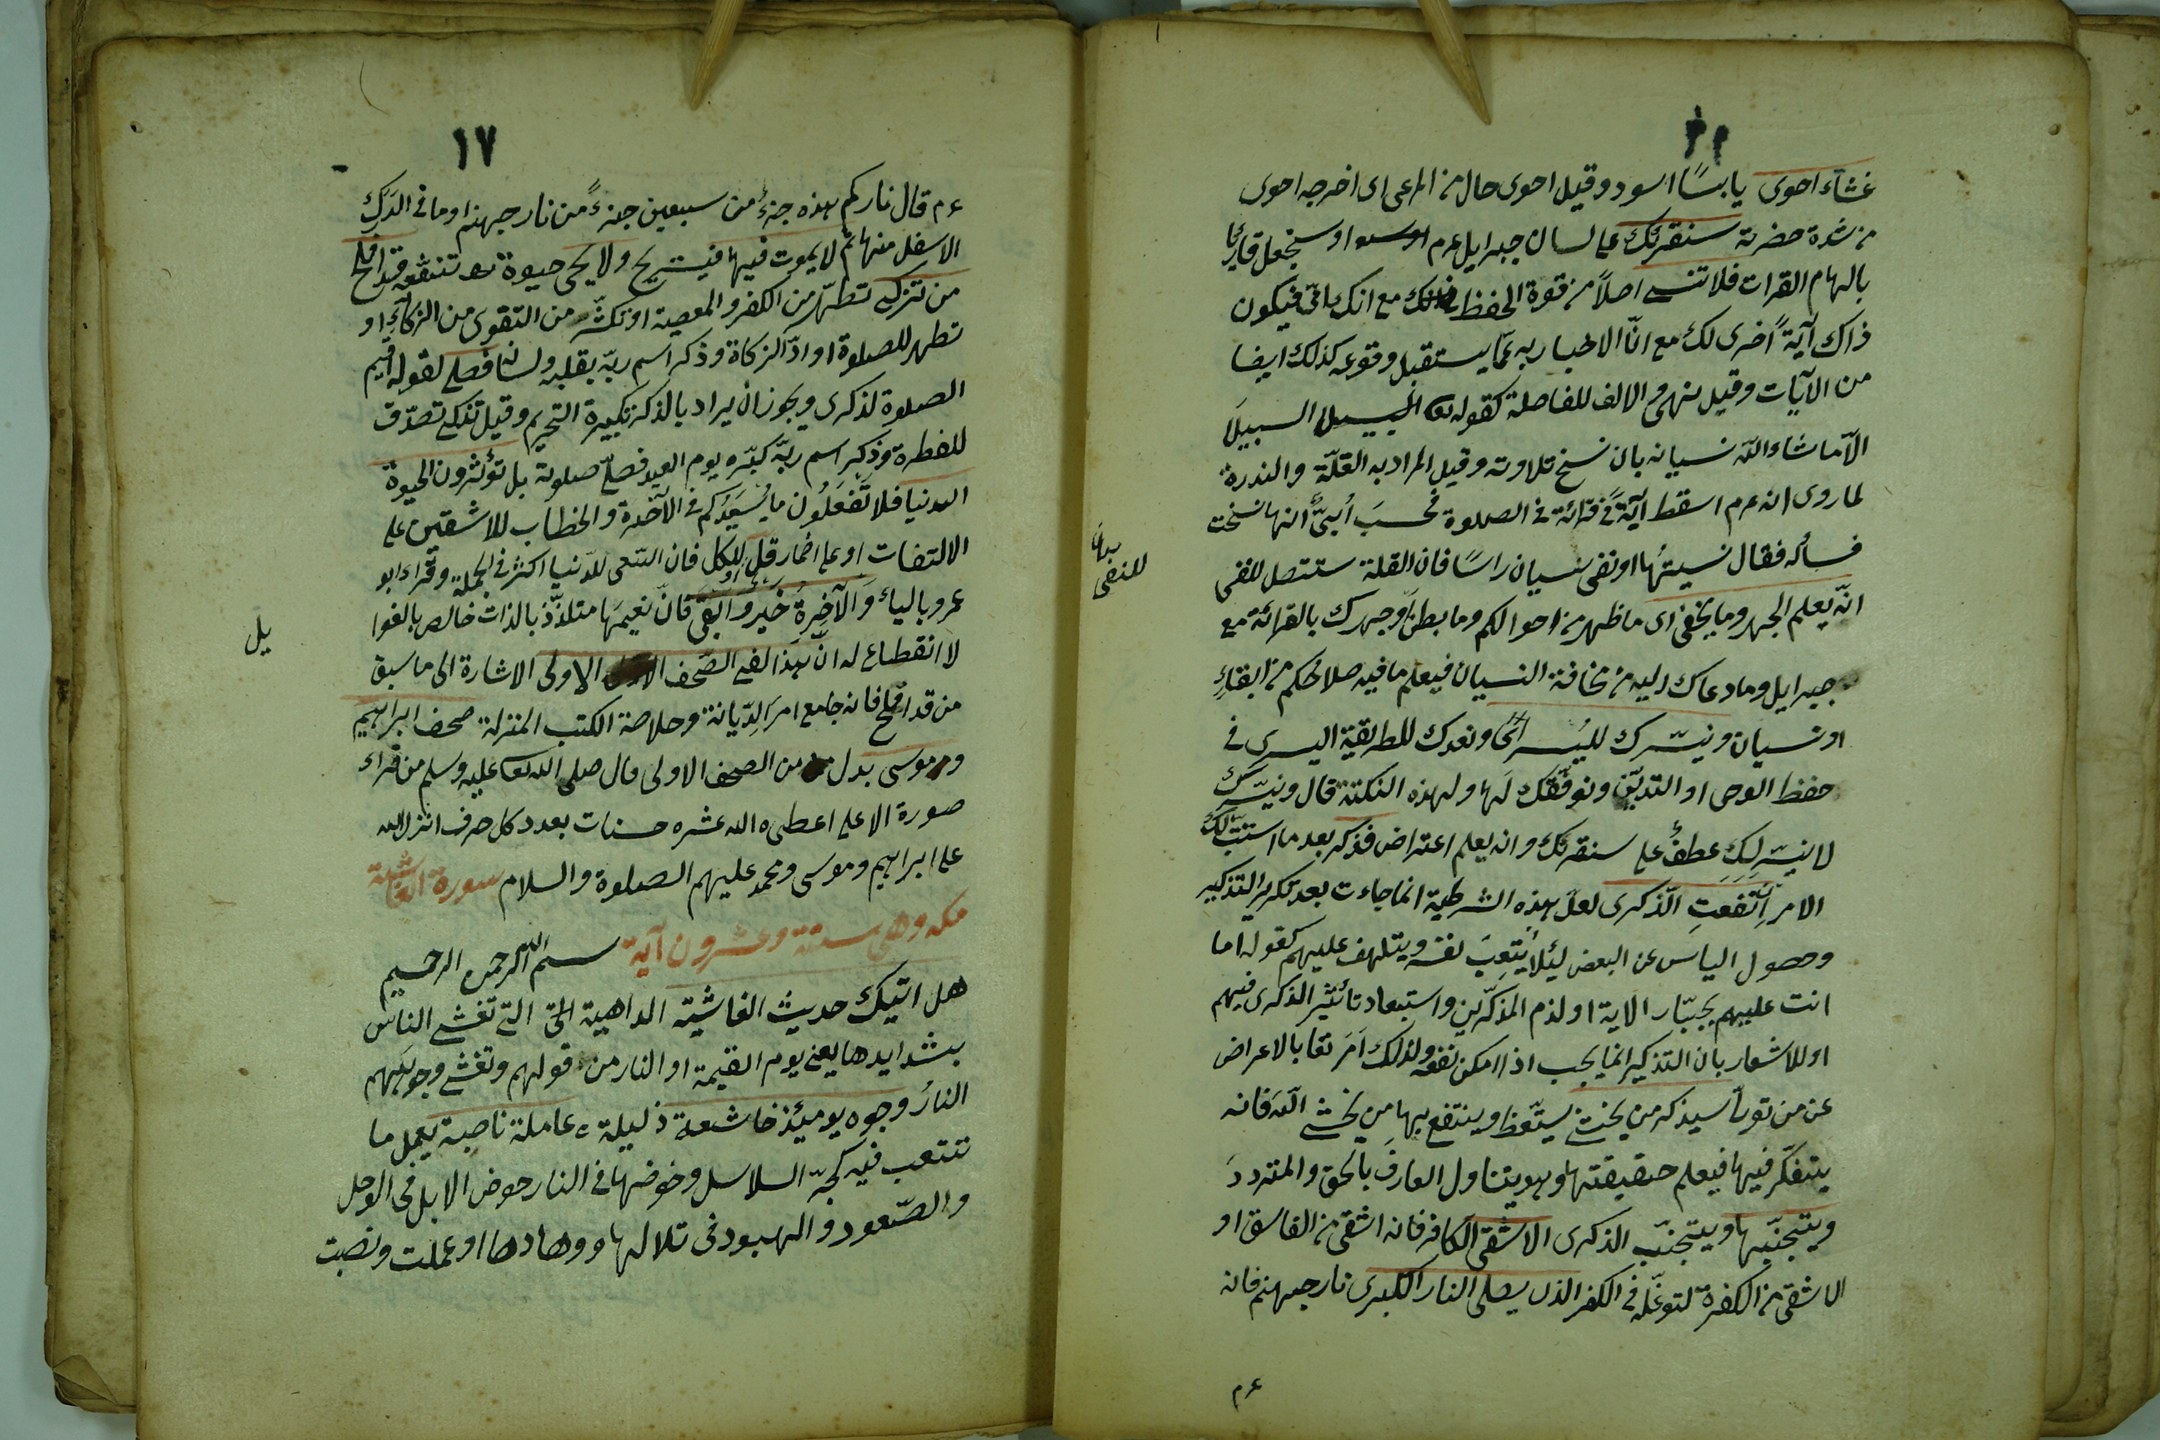 غثاء احوى يابسًا اسود وقيل احوى حال من المرعى اى اخرجه احوى
من شدة خضرته سنقرئك على لسان جبرايل عم او سنجعل قاريًا
بالهام القرات فلا تنسى اصلاً من قوة الحفظ مع انك امّى فيكون
ذاك آيةً اخرى لك مع انّ الاخبار به عمّا يستقبل وقوعه كذلك ايضا
من الآيات وقيل نهى والالف للفاصلة كقوله تعا السبيلا
الّا ما شاء اللّه نسيانه بان نسخ تلاوته وقيل المراد به القلّة والندرة
لما روى انه عم اسقط آيةً فى قرائة فى الصلوة فحسبَ اُبىٌّ انها نسخت
فسأله فقال نسيتُها او نفى نسيان راسًا فان القلة ستتصل للنفى
انّه يعلم الجهر وما يخفى اى ما ظهر من احوالكم وما بطن او جهرك بالقرائة مع
جبرايل وما دعاك اليه من مخافة النسيان فيعلم ما فيه صلاحكم من ابقاءٍ
او نسيان ونيسّرك لليُسرى ونعدك للطريقة اليسرى فى
حفظ الوحى او التديّن ونوفّقك لَها ولهذه النكتة قال ونيسّرك
لا نيسّر لك عطفٌ على سنقرئك وانه يعلم اعتراض فذكر بعد ما استتبّ لك
الامر اِن نفعتِ الذّكرى لعلّ هذه الشرطية انما جاءت بعد تكرير التذكير
وحصول الياس عن البعض لئلا يُتعِبَ نفسه ويتلهف عليهم كقوله اما
انت عليهم بجبّار الاية او لذم المذكّرين واستبعاد تأثير الذكرى فيهم
او للاشعار بان التذكير انما يجب اذا امكن نفعه ولذلك اَمَر تعا بالاعراض
عن من تولّ سيذكر من يخشى سيتّعظ وينتفع بها من يخشى اللّه فانه
يتفكّر فيها فيعلم حقيقتها وهو يتناول العارفَ بالحق والمتردّدَ
ويتجنّبها ويتجنّب الذكرى الاشقى الكافر فانه اشقى من الفاسق او
الاشقى من الكفرة لتوغّله فى الكفر الذى يصلى النار الكبرى نار جهنم فانه
عم
بدلها
للنفى
١٧
عم قال ناركم هذه جزءٌ من سبعين جزءً من نار جهنم او ما فى الدَرك
الاسفل منها ثم لا يموت فيها فيستريح ولا يحى حيوة تنفعه قد افلح
من تزكى تطهّر من الكفر والمعصية او تكثّر من التقوى من الزكاءِ او
تطهر للصلوة او ادّا الزكاة وذكر اسم ربّه بقلبه ولسانه فصلّى لقوله اقيم
الصلوة لذكرى ويجوز ان يراد بالذكر تكبيرة التحريم وقيل تزكّى تصدّق
للفطرة وذكر اسم ربّه كبّره يوم العيد فصلّى صلوته بل تؤثرون الحيوة
الدنيا فلا تفعلُون ما يُسعِدُكم فى الآخرة والخطاب للاشقين على
الالتفات او على اضمار قل او للكل فان السّعى للدّنيا اكثر فى الجملة وقراء ابو
عمرو بالياء والآخِرةُ خَير وابقى فانّ نعيمَها متلذّذ بالذات خالص بالغوا
يل
لا انقطاع له انّ هذا لفى الصّحف الاولى الاشارة الى ما سبق
من قد افلح فانه جامع امر الدّيانة وخلاصة الكتب المنزلة صحف ابراهيم
وموسى بدل من الصحف الاولى قال صلى الله تعا عليه وسلم من قراء
صورة الاعلى اعطى ه الله عشره حسنات بعدد كل حرف انزل الله
على ابراهيم وموسى ومحمد عليهم الصلوة والسلام سورة الغاشية
مكه وهى ستة وعشرون آية بسم الله الرحمن الرحيم
هل اتيك حديثُ الغاشية الداهية التى تغشى الناس
بشدايدها يعنى يوم القيمة او النار من قولهم وتغشى وجوههم
النارُ وجوه يومئذ خاشعة ذليلة عاملة ناصبة يعمل ما
تتعب فيه كجرّ السلاسل وخوضها فى النار خوض الابل فى الوحل
والصّعود والهبود فى تلالها ووهادها او عملت ونصبت